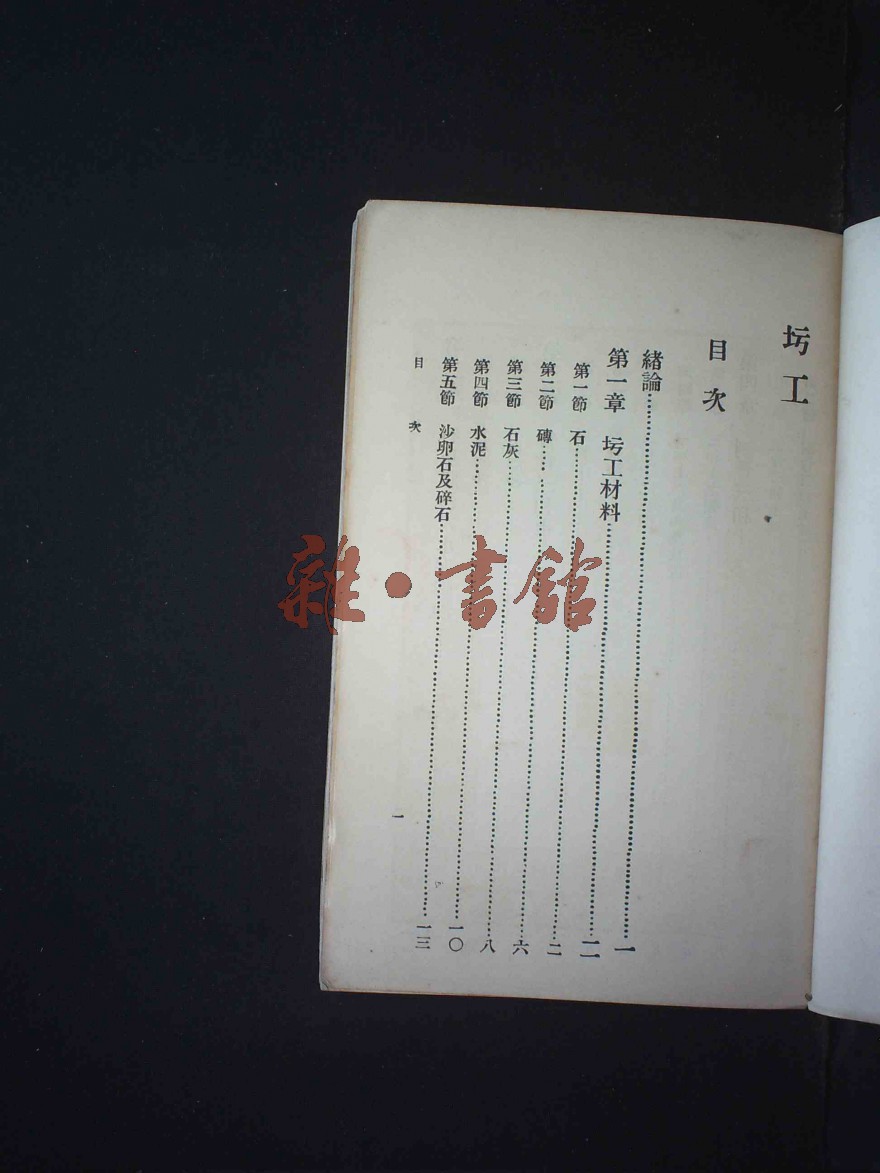 圬工
目次
緒論……一
第一章　圬工材料……二
第一節　石……二
第二節　磚……六
第三節　石灰……八
第四節　水泥……一〇
第五節　沙卵石及碎石……一三
目次　一
雜·書館